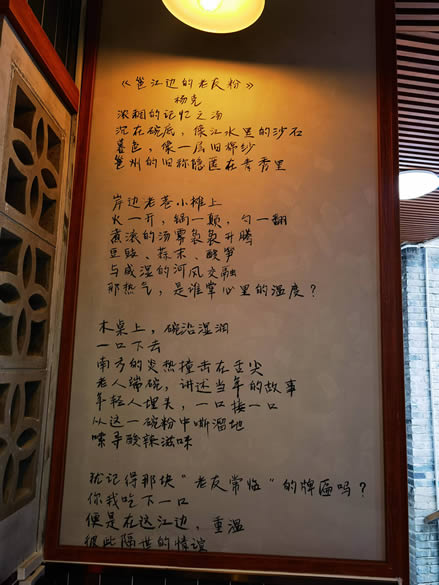 《邕江边的老友粉》
杨克
浓稠的记忆之汤
沉在碗底，像江水里的沙石
暮色，像一层旧棉纱
邕州的旧称隐匿在青秀里
岸边老苍小摊上
火一开，锅一颠，勺一翻
煮滚的汤雾袅袅升腾
豆豉、蒜末、酸笋
与咸湿的河风交融
那热气，是谁掌心里的温度？
木桌上，碗沿湿润
一口下去
南方的炎热撞击在舌尖
老人端碗，讲述当年的故事
年轻人埋头，一口接一口
从这一碗粉中嘶溜地
嗦寻酸辣滋味
犹记得那块“老友常临”的牌匾吗？
你我吃下一口
便是在这江边，重温
彼此隔世的情谊